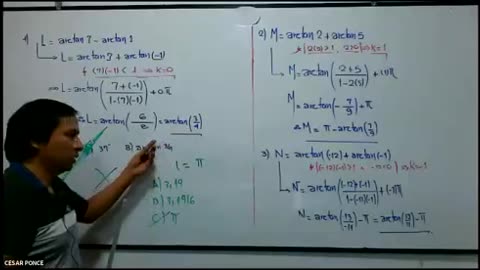 1) L = arctan 7 - arctan 1
L = arctan 7 + arctan (-1)
(7)(-1) < 1 ⇒ k=0
⇒ L = arctan (7+(-1) / 1-(7)(-1)) + 0π
L = arctan (6/8) = arctan (3/4)
1 = π
A) 3,14
B) 3,1416
C) π
2) M = arctan 2 + arctan 5
* (2)(5) > 1, 2>0 ⇒ k=1
M = arctan (2+5 / 1-2(5)) + (1)π
M = arctan (-7/9) + π
M = π - arctan (7/9)
3) N = arctan (-12) + arctan (-1)
N = arctan ((-12)+(-1) / 1-(-12)(-1)) + (-1)π
N = arctan (13/11) - π = arctan (13/11) - π
CESAR PONCE